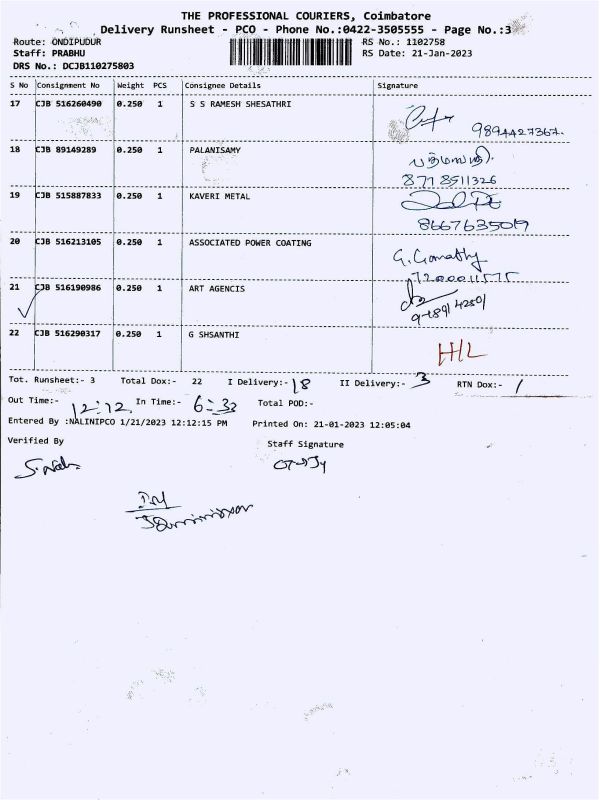 THE PROFESSIONAL COURIERS, Coimbatore
Delivery Runsheet - PCO - Phone No.:0422-3505555 - Page No.:3
Route: ONDIPUDUR RS No.: 1102758
Staff: PRABHU RS Date: 21-Jan-2023
DRS No.: DCJB110275803
S No Consignment No Weight PCS Consignee Details Signature
17 CJB 516260490 0.250 1 S S RAMESH SHESATHRI
9894427367.
18 CJB 89149289 0.250 1 PALANISAMY
8778511326
19 CJB 515887833 0.250 1 KAVERI METAL
8667635019
20 CJB 516213105 0.250 1 ASSOCIATED POWER COATING G. Gomathy
7200011575
21 CJB 516190986 0.250 1 ART AGENCIS
22 CJB 516290317 0.250 1 G SHSANTHI
H/L
Tot. Runsheet:- 3 Total Dox:- 22 I Delivery:- 18 II Delivery:- 3 RTN Dox:- 1
Out Time:- 12:12 In Time:- 6:33 Total POD:-
Entered By :NALINIPCO 1/21/2023 12:12:15 PM Printed On: 21-01-2023 12:05:04
Verified By Staff Signature